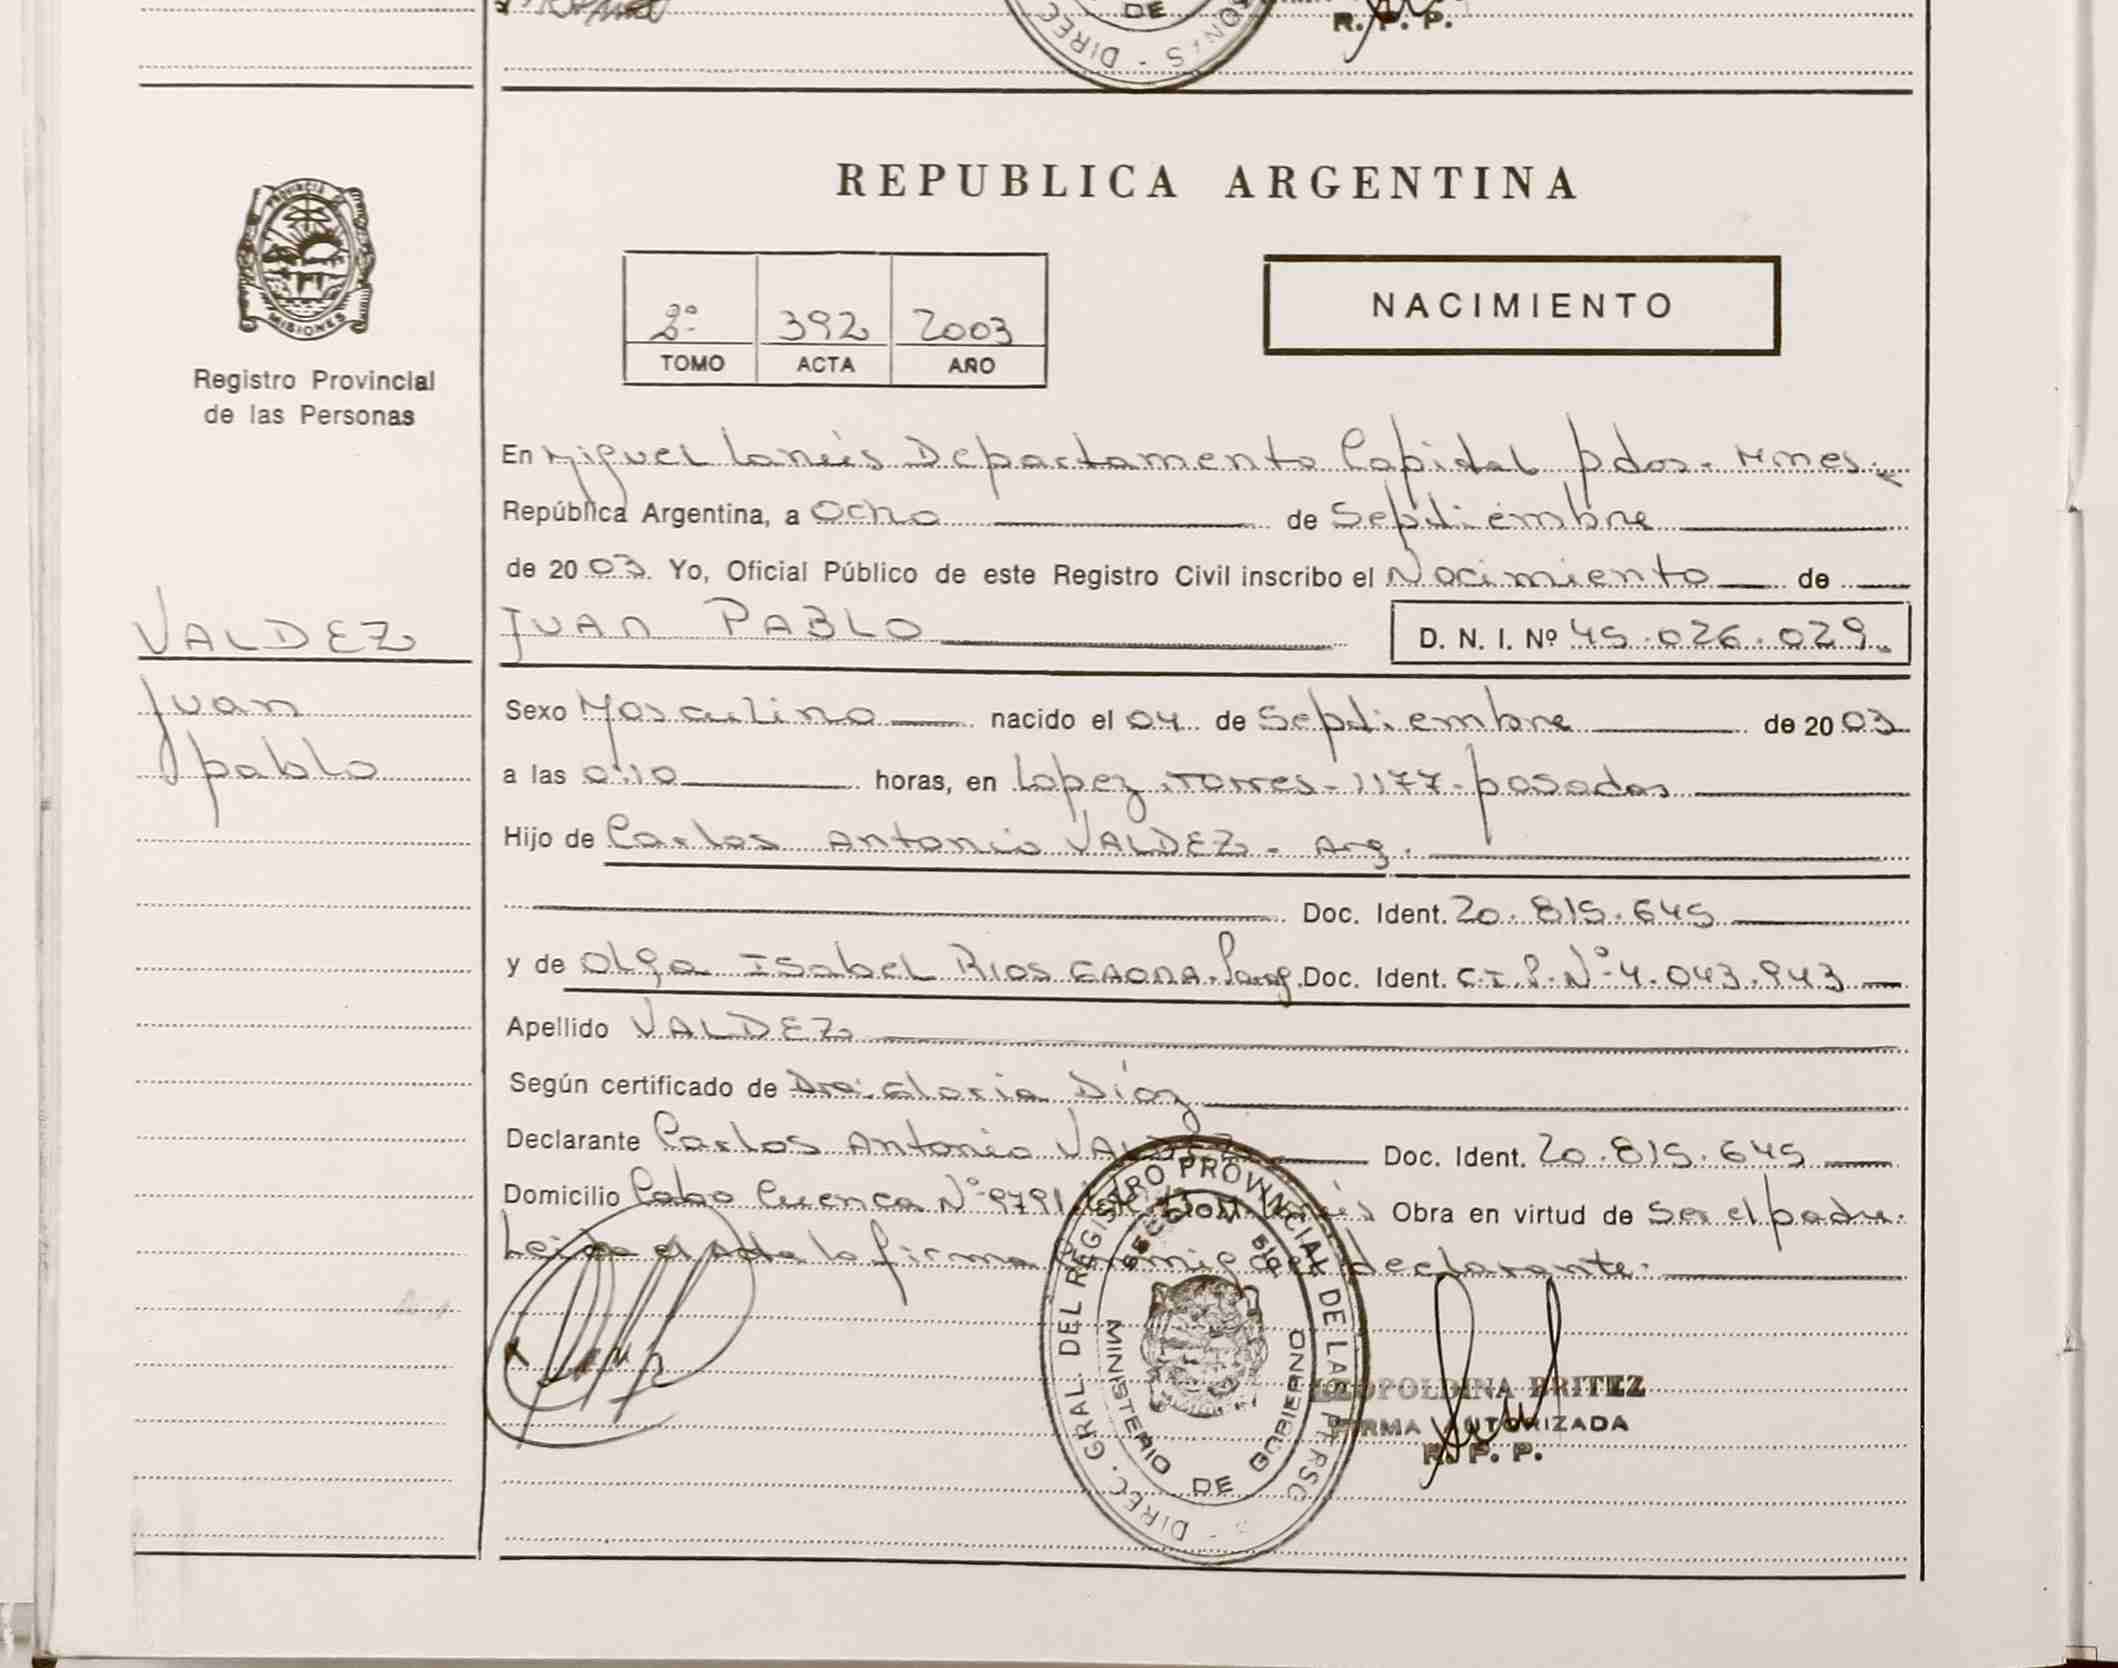 DE
DIREC
R. P. P.
PROVINCIA
MISIONES
Registro Provincial
de las Personas
REPUBLICA ARGENTINA
2º 392 2003
TOMO ACTA AÑO
NACIMIENTO
En Miguel Lanús Departamento Capital pdas. Mnes.
República Argentina, a Ocho de Septiembre
de 2003. Yo, Oficial Público de este Registro Civil inscribo el Nacimiento de
VALDEZ
Juan
pablo
JUAN PABLO D. N. I. Nº 45.026.029
Sexo Masculino nacido el 04 de Septiembre de 2003
a las 0:10 horas, en Lopez Torres 1177 posadas
Hijo de Carlos Antonio VALDEZ - Arg.
Doc. Ident. 20.815.645
y de Olga Isabel Rios GAONA. Parag. Doc. Ident. C.I.P. Nº 4.043.943
Apellido VALDEZ
Según certificado de Dra. Gloria Díaz
Declarante Carlos Antonio VALDEZ Doc. Ident. 20.815.645
Domicilio Cabo Cuenca Nº 9791 Obra en virtud de Ser el padre.
Leida el acta la firma conmigo el declarante.
DIREC. GRAL. DEL REGISTRO PROVINCIAL DE LAS PERSO
SECCION
MINISTERIO DE GOBIERNO
LEOPOLDINA BRITEZ
FIRMA AUTORIZADA
R. P. P.